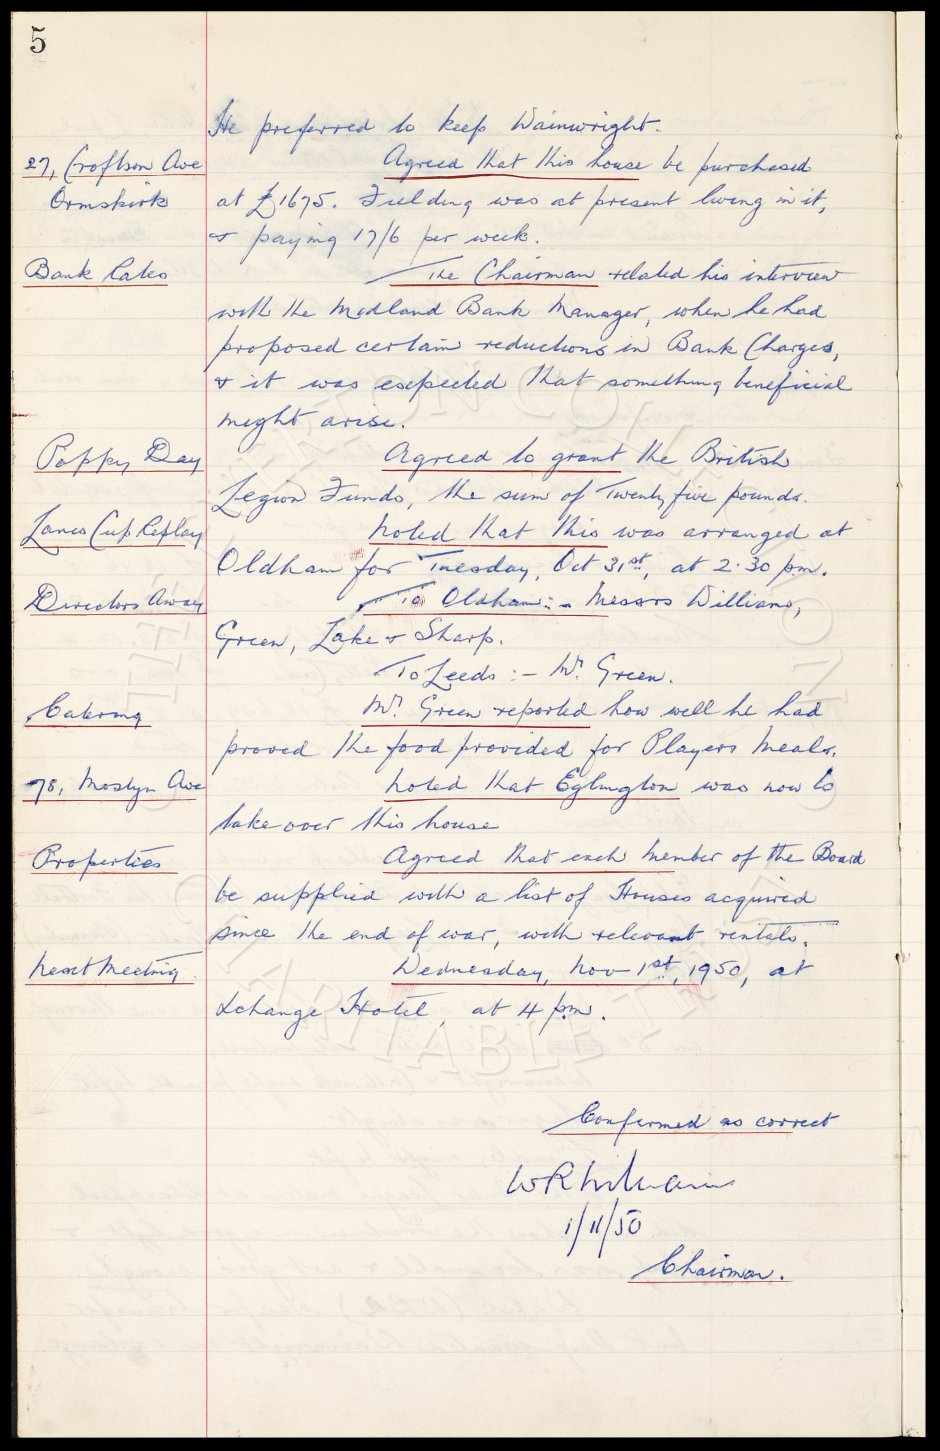 5
He preferred to keep Wainwright.
27, Croftson Ave Agreed that this house be purchased
Ormskirk at £1675. Fielding was at present living in it,
& paying 17/6 per week.
Bank Rates The Chairman related his interview
with the Midland Bank Manager, when he had
proposed certain reductions in Bank Charges,
& it was expected that something beneficial
might arise.
Poppy Day Agreed to grant the British
Legion Funds, the sum of Twenty five pounds.
Lancs Cup Replay Noted that this was arranged at
Oldham for Tuesday, Oct 31st, at 2.30 pm.
Directors Away To Oldham:- Messrs Williams,
Green, Lake & Sharp.
To Leeds:- Mr. Green.
Catering Mr. Green reported how well he had
proved the food provided for Players Meals.
78, Mostyn Ave Noted that Eglington was now to
take over this house
Properties Agreed that each Member of the Board
be supplied with a list of Houses acquired
since the end of war, with relevant rentals.
Next Meeting Wednesday, Nov 1st, 1950, at
Xchange Hotel, at 4 p.m.
Confirmed as correct
WR Williams
1/11/50
Chairman.
THE EVERTON COLLECTION
CHARITABLE TRUST